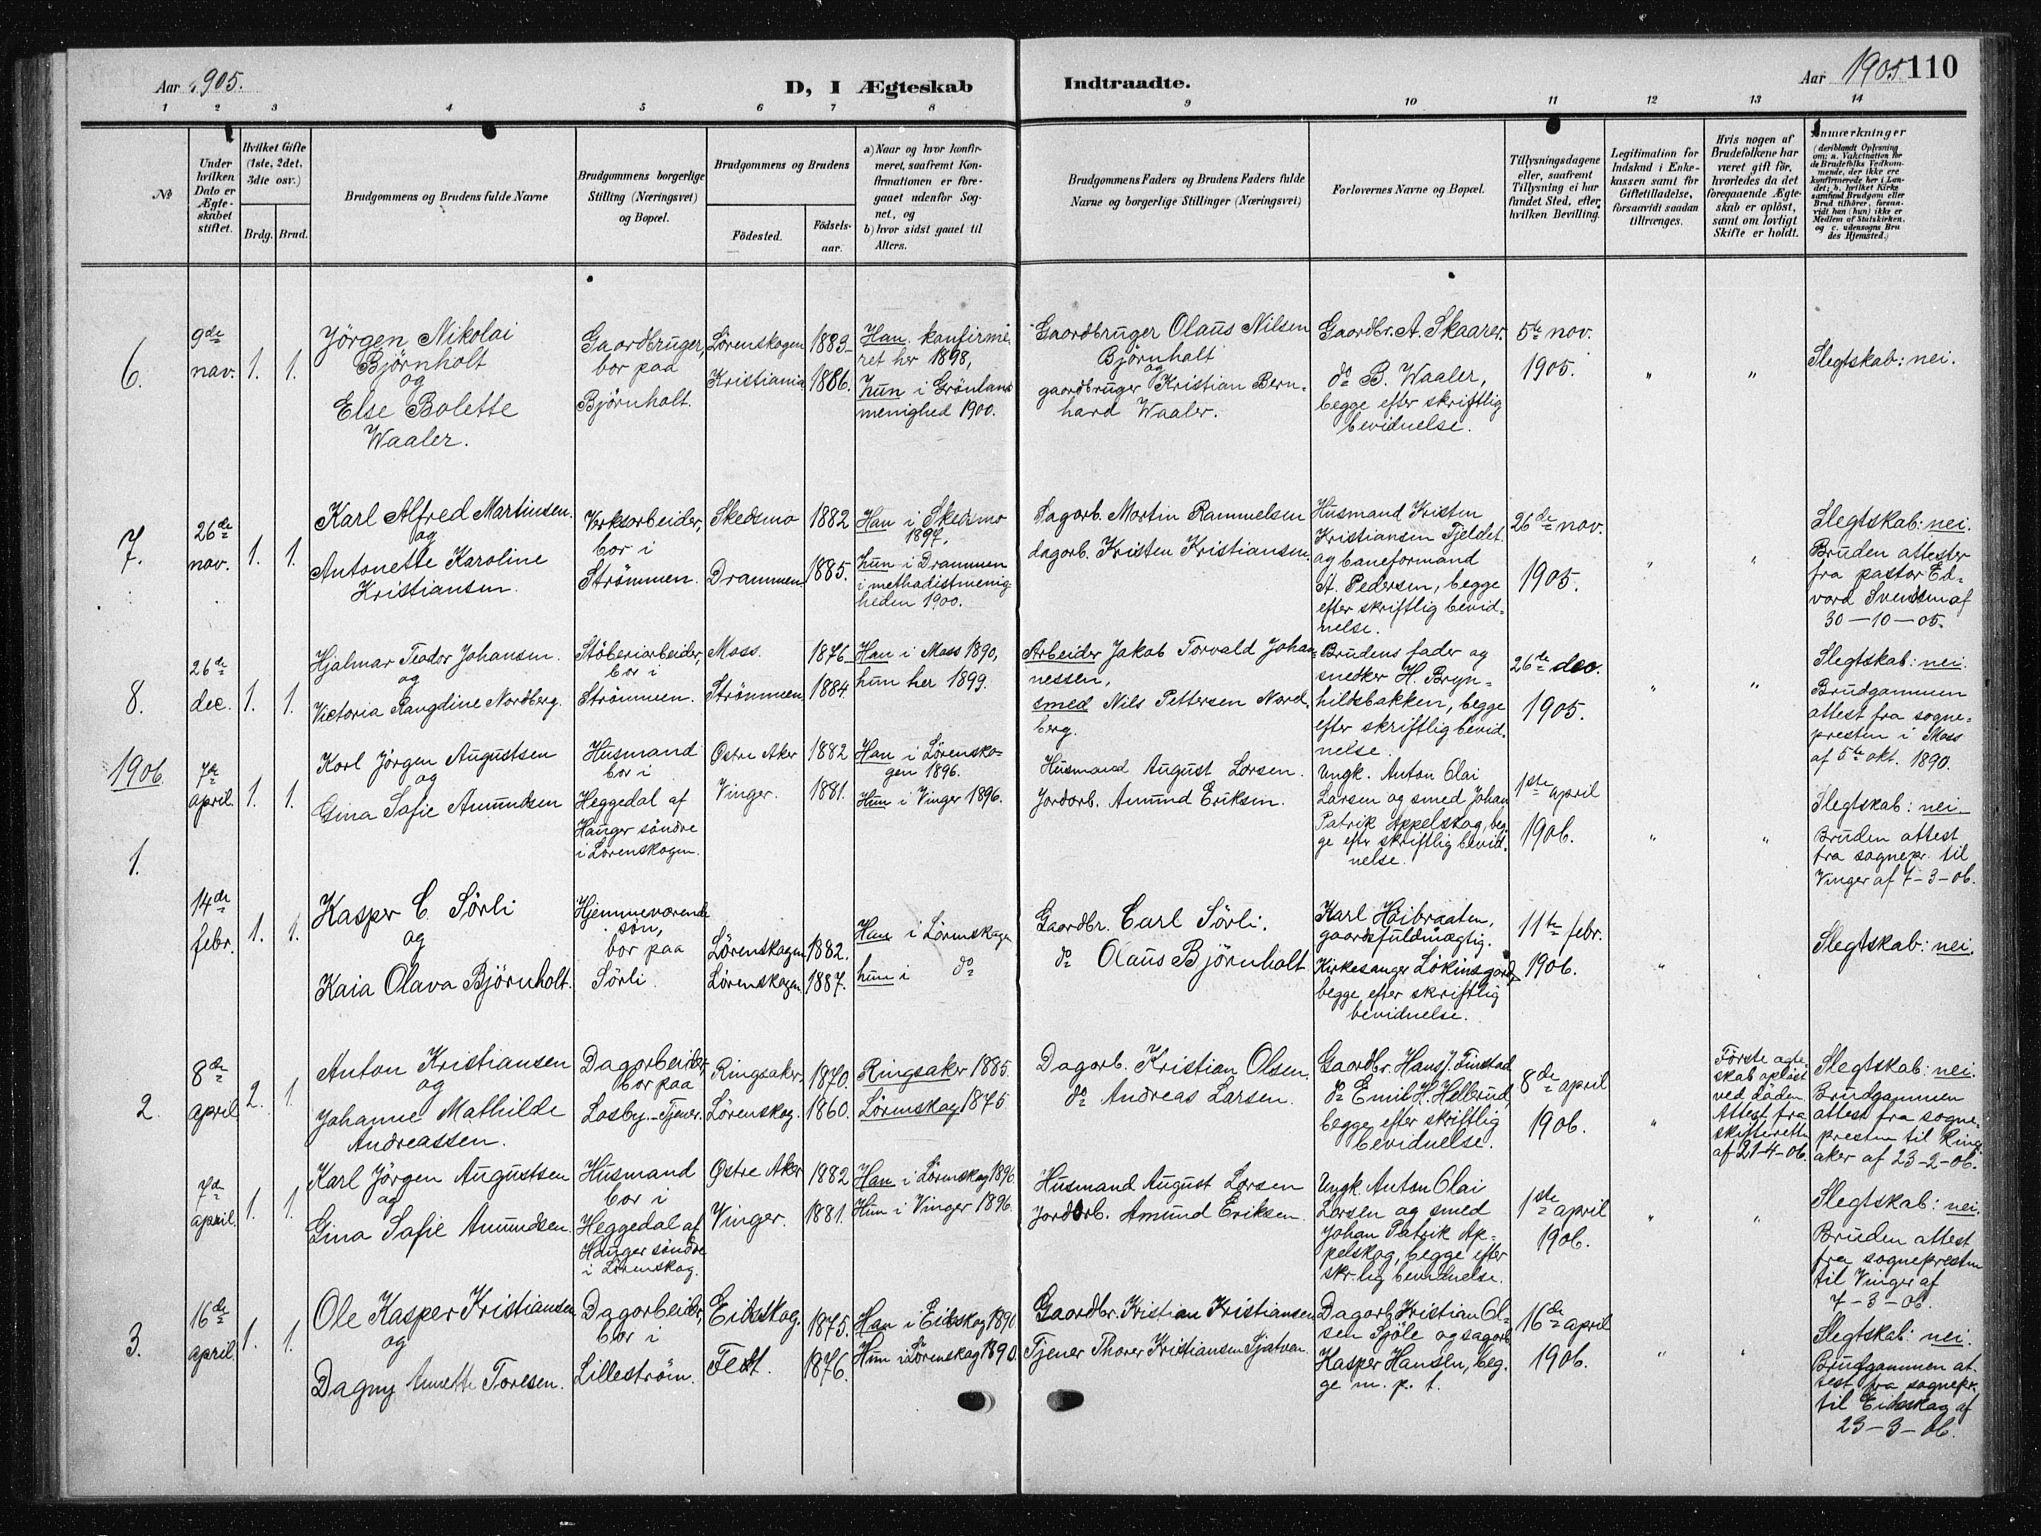 Aar 1905.
D, I Ægteskab
Indtraadte.
Aar 1905.
110
1 2 3 4 5 6 7 8 9 10 11 12 13 14
№
Under hvilken Dato er Ægteskabet stiftet.
Hvilket Gifte (1ste, 2det, 3die osv.)
Brdg. Brud.
Brudgommens og Brudens fulde Navne
Brudgommens borgerlige Stilling (Næringsvei) og Bopæl.
Brudgommens og Brudens
Fødested.
Fødselsaar.
a) Naar og hvor konfirmeret, saafremt Konfirmationen er foregaaet udenfor Sognet, og
b) hvor sidst gaaet til Alters.
Brudgommens Faders og Brudens Faders fulde Navne og borgerlige Stillinger (Næringsvei)
Forlovernes Navne og Bopæl.
Tillysningsdagene eller, saafremt Tillysning ei har fundet Sted, efter hvilken Bevilling.
Legitimation for Indskud i Enkekassen samt for Giftetilladelse, forsaavidt saadan tiltrænges.
Hvis nogen af Brudefolkene har været gift før, hvorledes da det foregaaende Ægteskab er opløst, samt om lovligt Skifte er holdt.
Anmærkninger
(deriblandt Oplysning om: a. Vakcination for de Brudefolks Vedkommende, der ikke ere konfirmerede her i Landet; b. hvilket Kirkesamfund Brudgom eller Brud tilhører, forsaavidt han (hun) ikke er Medlem af Statskirken, og c. udensogns Brudes Hjemsted.)
6.
9de nov.
1. 1.
Jörgen Nikolai
Björnholt
og
Else Bolette
Waaler.
Gaardbruger,
bor paa
Björnholt.
Lørenskogen
Kristiania
1883
1886.
Han konfirmeret her 1898,
hun i Grönlands
menighed 1900.
Gaardbruger Olaus Nilsen
Björnholt
og
gaardbruger Kristian Bernhard Waaler.
Gaardbr. A. Skaarer.
do B. Waaler,
begge efter skriftlig
bevidnelse.
5te nov.
1905.
" "
Slegtskab: nei.
7.
26de nov.
1. 1.
Karl Alfred Martinsen
og
Antonette Karoline
Kristiansen.
Verksarbeider,
bor i
Strömmen.
Skedsmo
Drammen
1882
1885.
Han i Skedsmo
1897,
hun i Drammen
i methodistmenigheden 1900.
Dagarb. Martin Rammelsen
dagarb. Kristen Kristiansen.
Husmand Kristen
Kristiansen Fjeldet
og baneformand
A. Pedersen, begge
efter skriftlig bevidnelse.
26de nov.
1905.
" "
Slegtskab: nei.
Bruden attester
fra pastor Edvard Svendsen af
30-10-05.
8.
26de dec.
1. 1.
Hjalmar Teodor Johansen.
og
Victoria Raugdine Nordberg.
Stöberiarbeider,
bor i
Strömmen.
Moss.
Strömmen
1876
1884
Han i Moss 1890,
hun her 1899.
Arbeider Jakob Torvald Johannessen,
smed Nils Pettersen Nordberg.
Brudens fader og
snedker H. Brynhildsbakken, begge
efter skriftlig bevidnelse.
26de dec.
1905.
" "
Slegtskab: nei.
Brudgommen
attest fra sognepresten i Moss
af 5te okt. 1890.
1906.
1.
7de april.
1. 1.
Karl Jörgen Augustsen
og
Gina Safie Amundsen
Husmand
bor i
Heggedal af
Hauger söndre
i Lörenskogen.
Ostre Aker
Vinger.
1882
1881.
Han i Lörenskogen 1896.
Hun i Vinger 1896.
Husmand August Larsen.
Jordarb. Amund Eriksen.
Ungk. Anton Olai
Larsen og smed Johan
Patrik Appelskog, begge efter skriftlig bevidnelse.
1ste april
1906.
" "
Slegtskab: nei.
Bruden attest
fra sognepr. til
Vinger af 7-3-06.
14de febr.
1. 1.
Kasper C. Sörli
og
Kaia Olava Björnholt.
Hjemmeværende
sön,
bor paa
Sörli.
Lörenskogen
Lörenskogen
1882.
1887.
Han i Lörenskogen
hun i do
Gaardbr. Carl Sörli.
do Olaus Björnholt
Karl Haibraaten,
gaardsfuldmægtig.
Kirkesanger Lökinsgard
begge efter skriftlig
bevidnelse.
11te febr.
1906.
"
Slegtskab: nei.
2.
8de april
2. 1.
Anton Kristiansen
og
Johanne Mathilde
Andreassen.
Dagarbeider,
bor paa
Losby-Tjener.
Ringsaker.
Lörenskog.
1870.
1860.
Ringsaker 1885.
Lörenskog 1875.
Dagarb. Kristian Olsen.
do Andreas Larsen.
Gaardbr. Hans J. Finstad
do Emil H. Hellerud,
begge efter skriftlig
bevidnelse.
8de april
1906.
"
Förste ægteskab oplöst
ved Döden.
Attest fra
skifteretten
af 21-4-06.
Slegtskab: nei.
Brudgommen
attest fra sognepresten til Ringsaker af 23-2-06.
7de april.
1. 1.
Karl Jörgen Augustsen
og
Gina Safie Amundsen.
Husmand
bor i
Heggedal af
Hauger söndre
i Lörenskog.
Ostre Aker
Vinger.
1882
1881.
Han i Lörenskog 1896
Hun i Vinger 1896.
Husmand August Larsen
Jordarb. Amund Eriksen.
Ungk. Anton Olai
Larsen og smed
Johan Patrik Appelskog, begge efter
skr.lig bevidnelse.
1ste april
1906.
" "
Slegtskab: nei.
Bruden attest
fra sognepresten
til Vinger af
7-3-06.
3.
16de april.
1. 1.
Ole Kasper Kristiansen
og
Dagny Annette Toresen.
Dagarbeider,
bor i
Lilleström.
Eidskog.
Fedt.
1875.
1876.
Han i Eidskog 1890
Hun i Lörenskog 1890.
Gaardbr. Kristian Kristiansen
Tjener Thorer Kristiansen Sjatven
Dagarb. Kristian Olsen Sjöle og sagarb.
Kasper Hansen, begge m. p. t.
16de april
1906.
" "
Slegtskab: nei.
Brudgommen attest fra sognepr.
til Eidskog af
23-3-06.